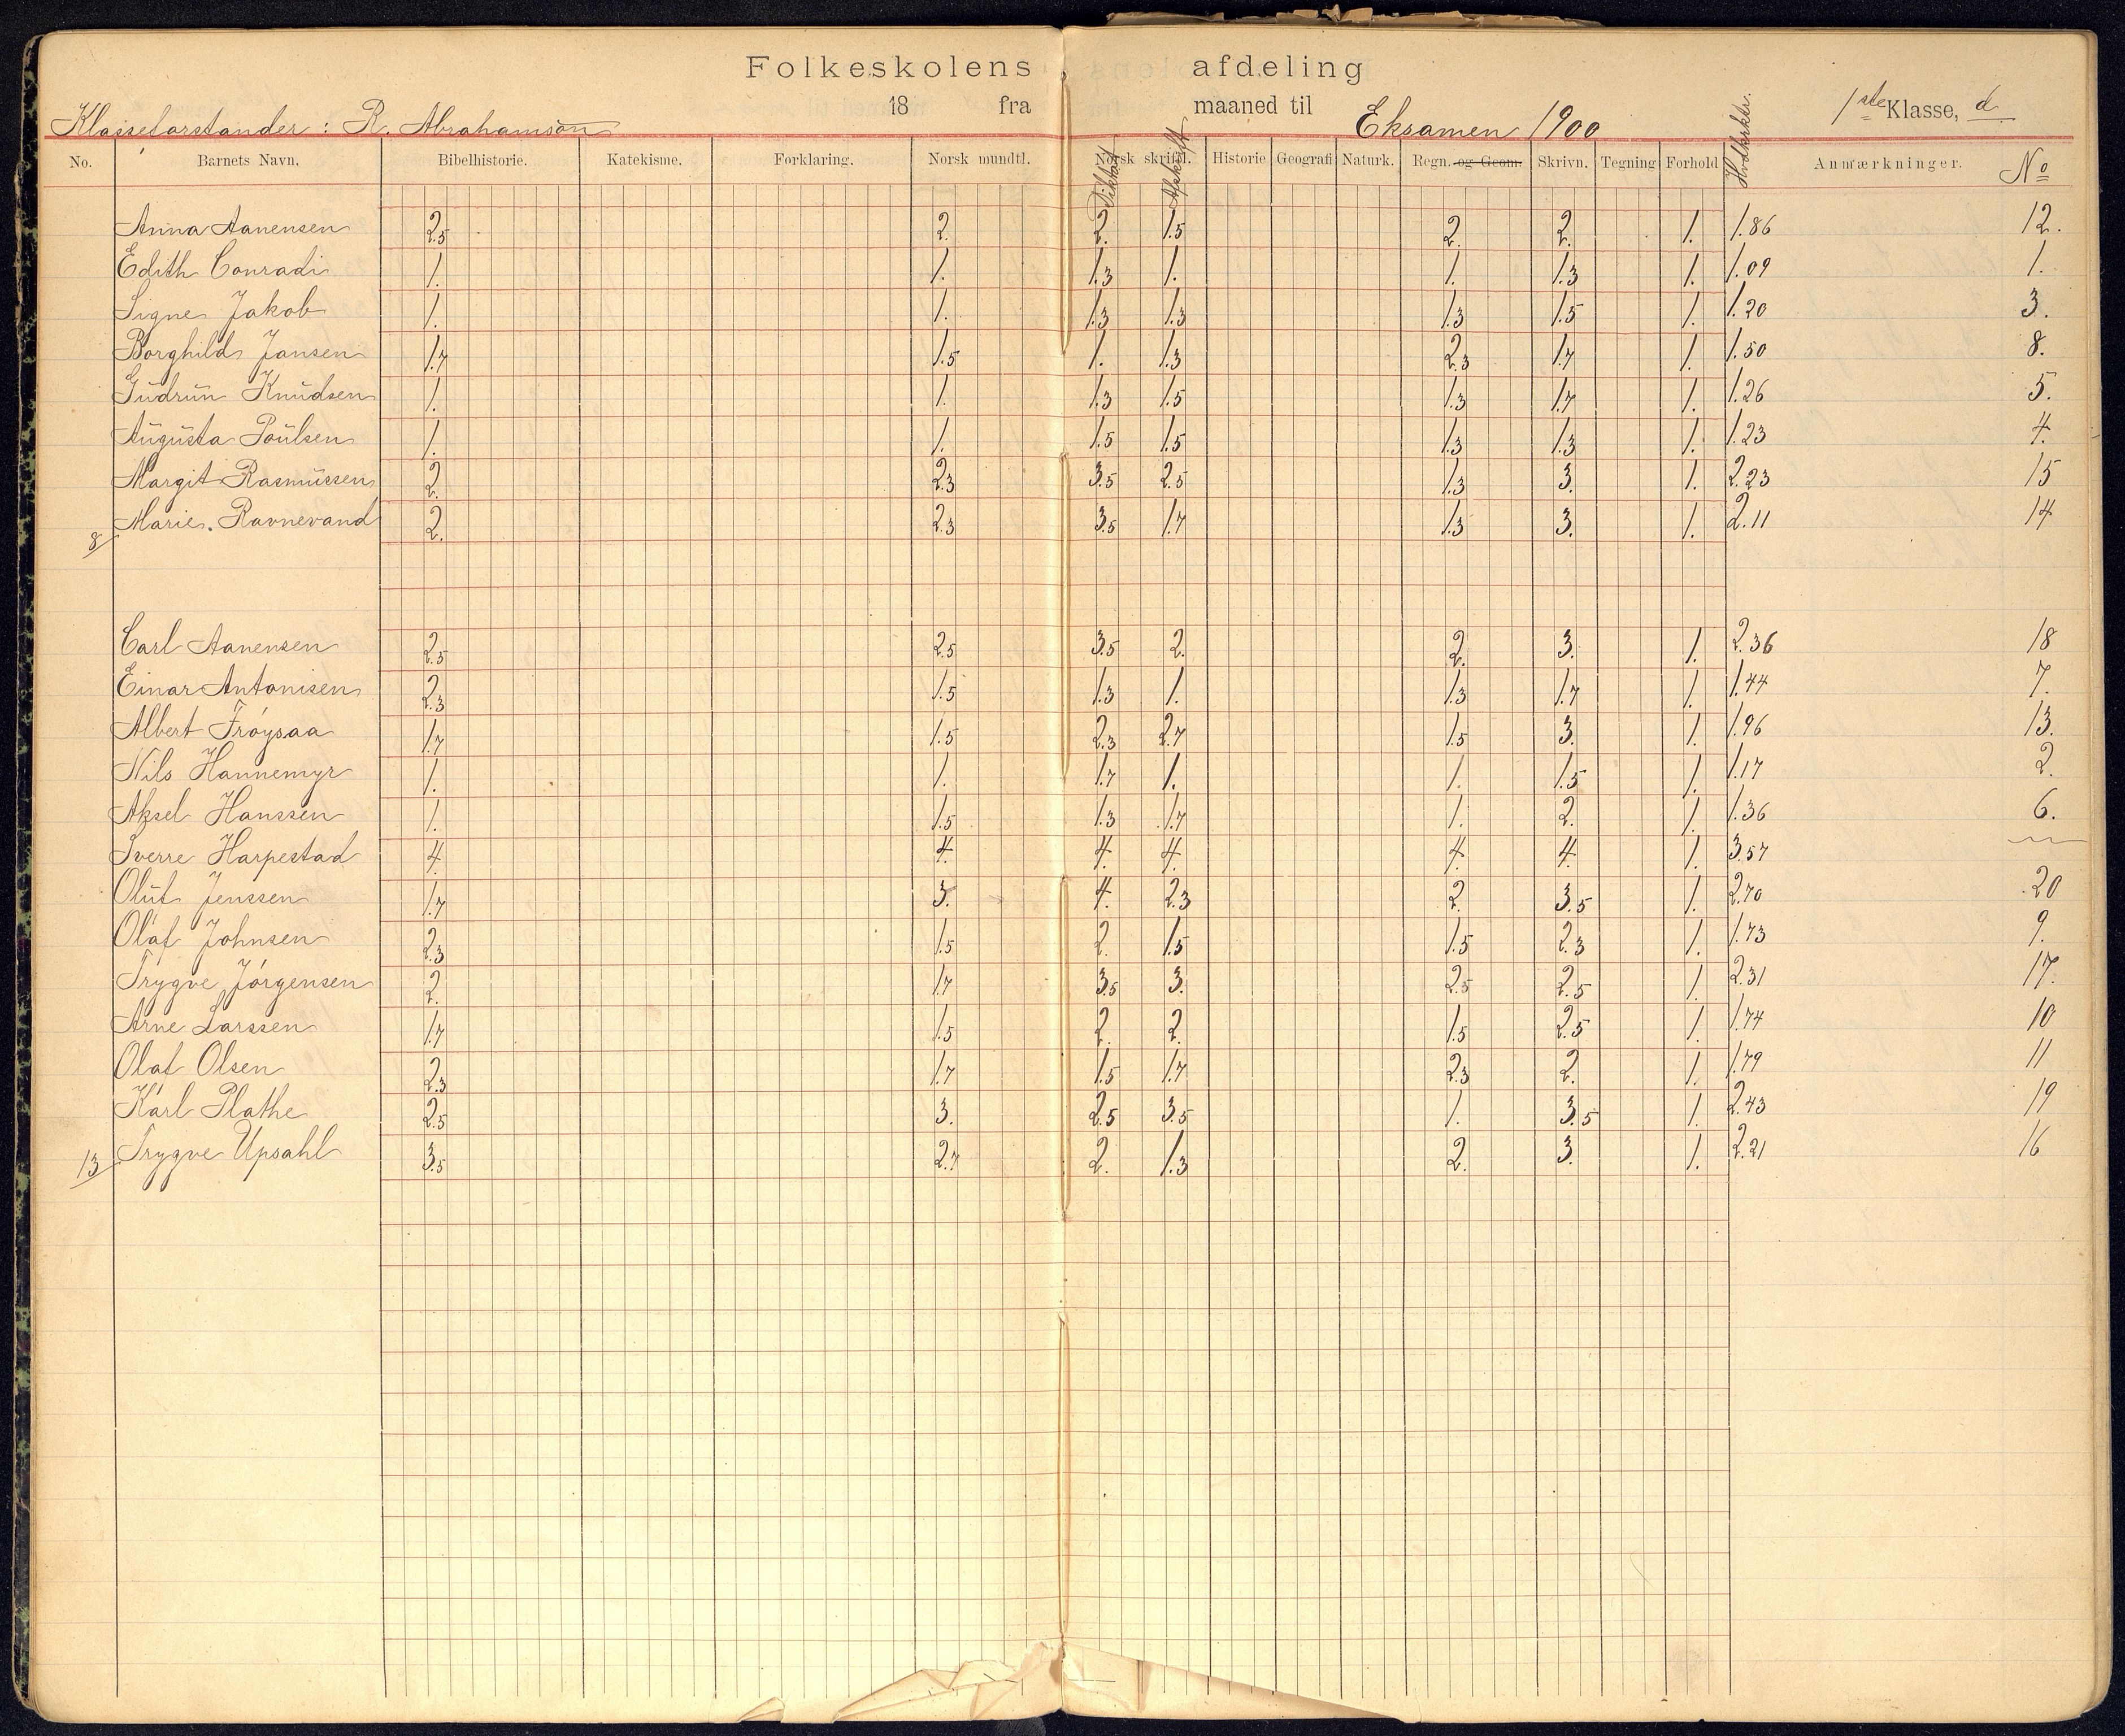 Folkeskolens afdeling
18 fra maaned til Eksamen 1900 1ste Klasse, d.
Klasseforstander: R. Abrahamson
No. Barnets Navn. Bibelhistorie. Katekisme. Forklaring. Norsk mundtl. Norsk skriftl. Diktat Afskrift Historie Geografi Naturk. Regn. og Geom. Skrivn. Tegning Forhold Hvdkrktr. Anmærkninger. No
Anna Aanensen 2.5 2. 2. 1.5 2. 2. 1. 1.86 12.
Edith Conradi 1. 1. 1.3 1. 1. 1.3 1. 1.09 1.
Signe Jakob 1. 1. 1.3 1.3 1.3 1.5 1. 1.20 3.
Borghild Jansen 1.7 1.5 1. 1.3 2.3 1.7 1. 1.50 8.
Gudrun Knudsen 1. 1. 1.3 1.5 1.3 1.7 1. 1.26 5.
Augusta Poulsen 1. 1. 1.5 1.5 1.3 1.3 1. 1.23 4.
Margit Rasmussen 2. 2.3 3.5 2.5 1.3 3. 1. 2.23 15
8 Marie Ravnevand 2. 2.3 3.5 1.7 1.3 3. 1. 2.11 14
Carl Aanensen 2.5 2.5 3.5 2. 2. 3. 1. 2.36 18
Einar Antonisen 2.3 1.5 1.3 1. 1.3 1.7 1. 1.44 7.
Albert Frøysaa 1.7 1.5 2.3 2.7 1.5 3. 1. 1.96 13.
Nils Hannemyr 1. 1. 1.7 1. 1. 1.5 1. 1.17 2.
Aksel Hanssen 1. 1.5 1.3 1.7 1. 2. 1. 1.36 6.
Sverre Harpestad 4. 4. 4. 4. 4. 4. 1. 3.57
Oluf Jenssen 1.7 3. 4. 2.3 2. 3.5 1. 2.70 20
Olaf Johnsen 2.3 1.5 2. 1.5 1.5 2.3 1. 1.73 9.
Trygve Jörgensen 2. 1.7 3.5 3. 2.5 2.5 1. 2.31 17.
Arne Larssen 1.7 1.5 2. 2. 1.5 2.5 1. 1.74 10
Olaf Olsen 2.3 1.7 1.5 1.7 2.3 2. 1. 1.79 11
Karl Plathe 2.5 3. 2.5 3.5 1. 3.5 1. 2.43 19
13 Trygve Upsahl 3.5 2.7 2. 1.3 2. 3. 1. 2.21 16